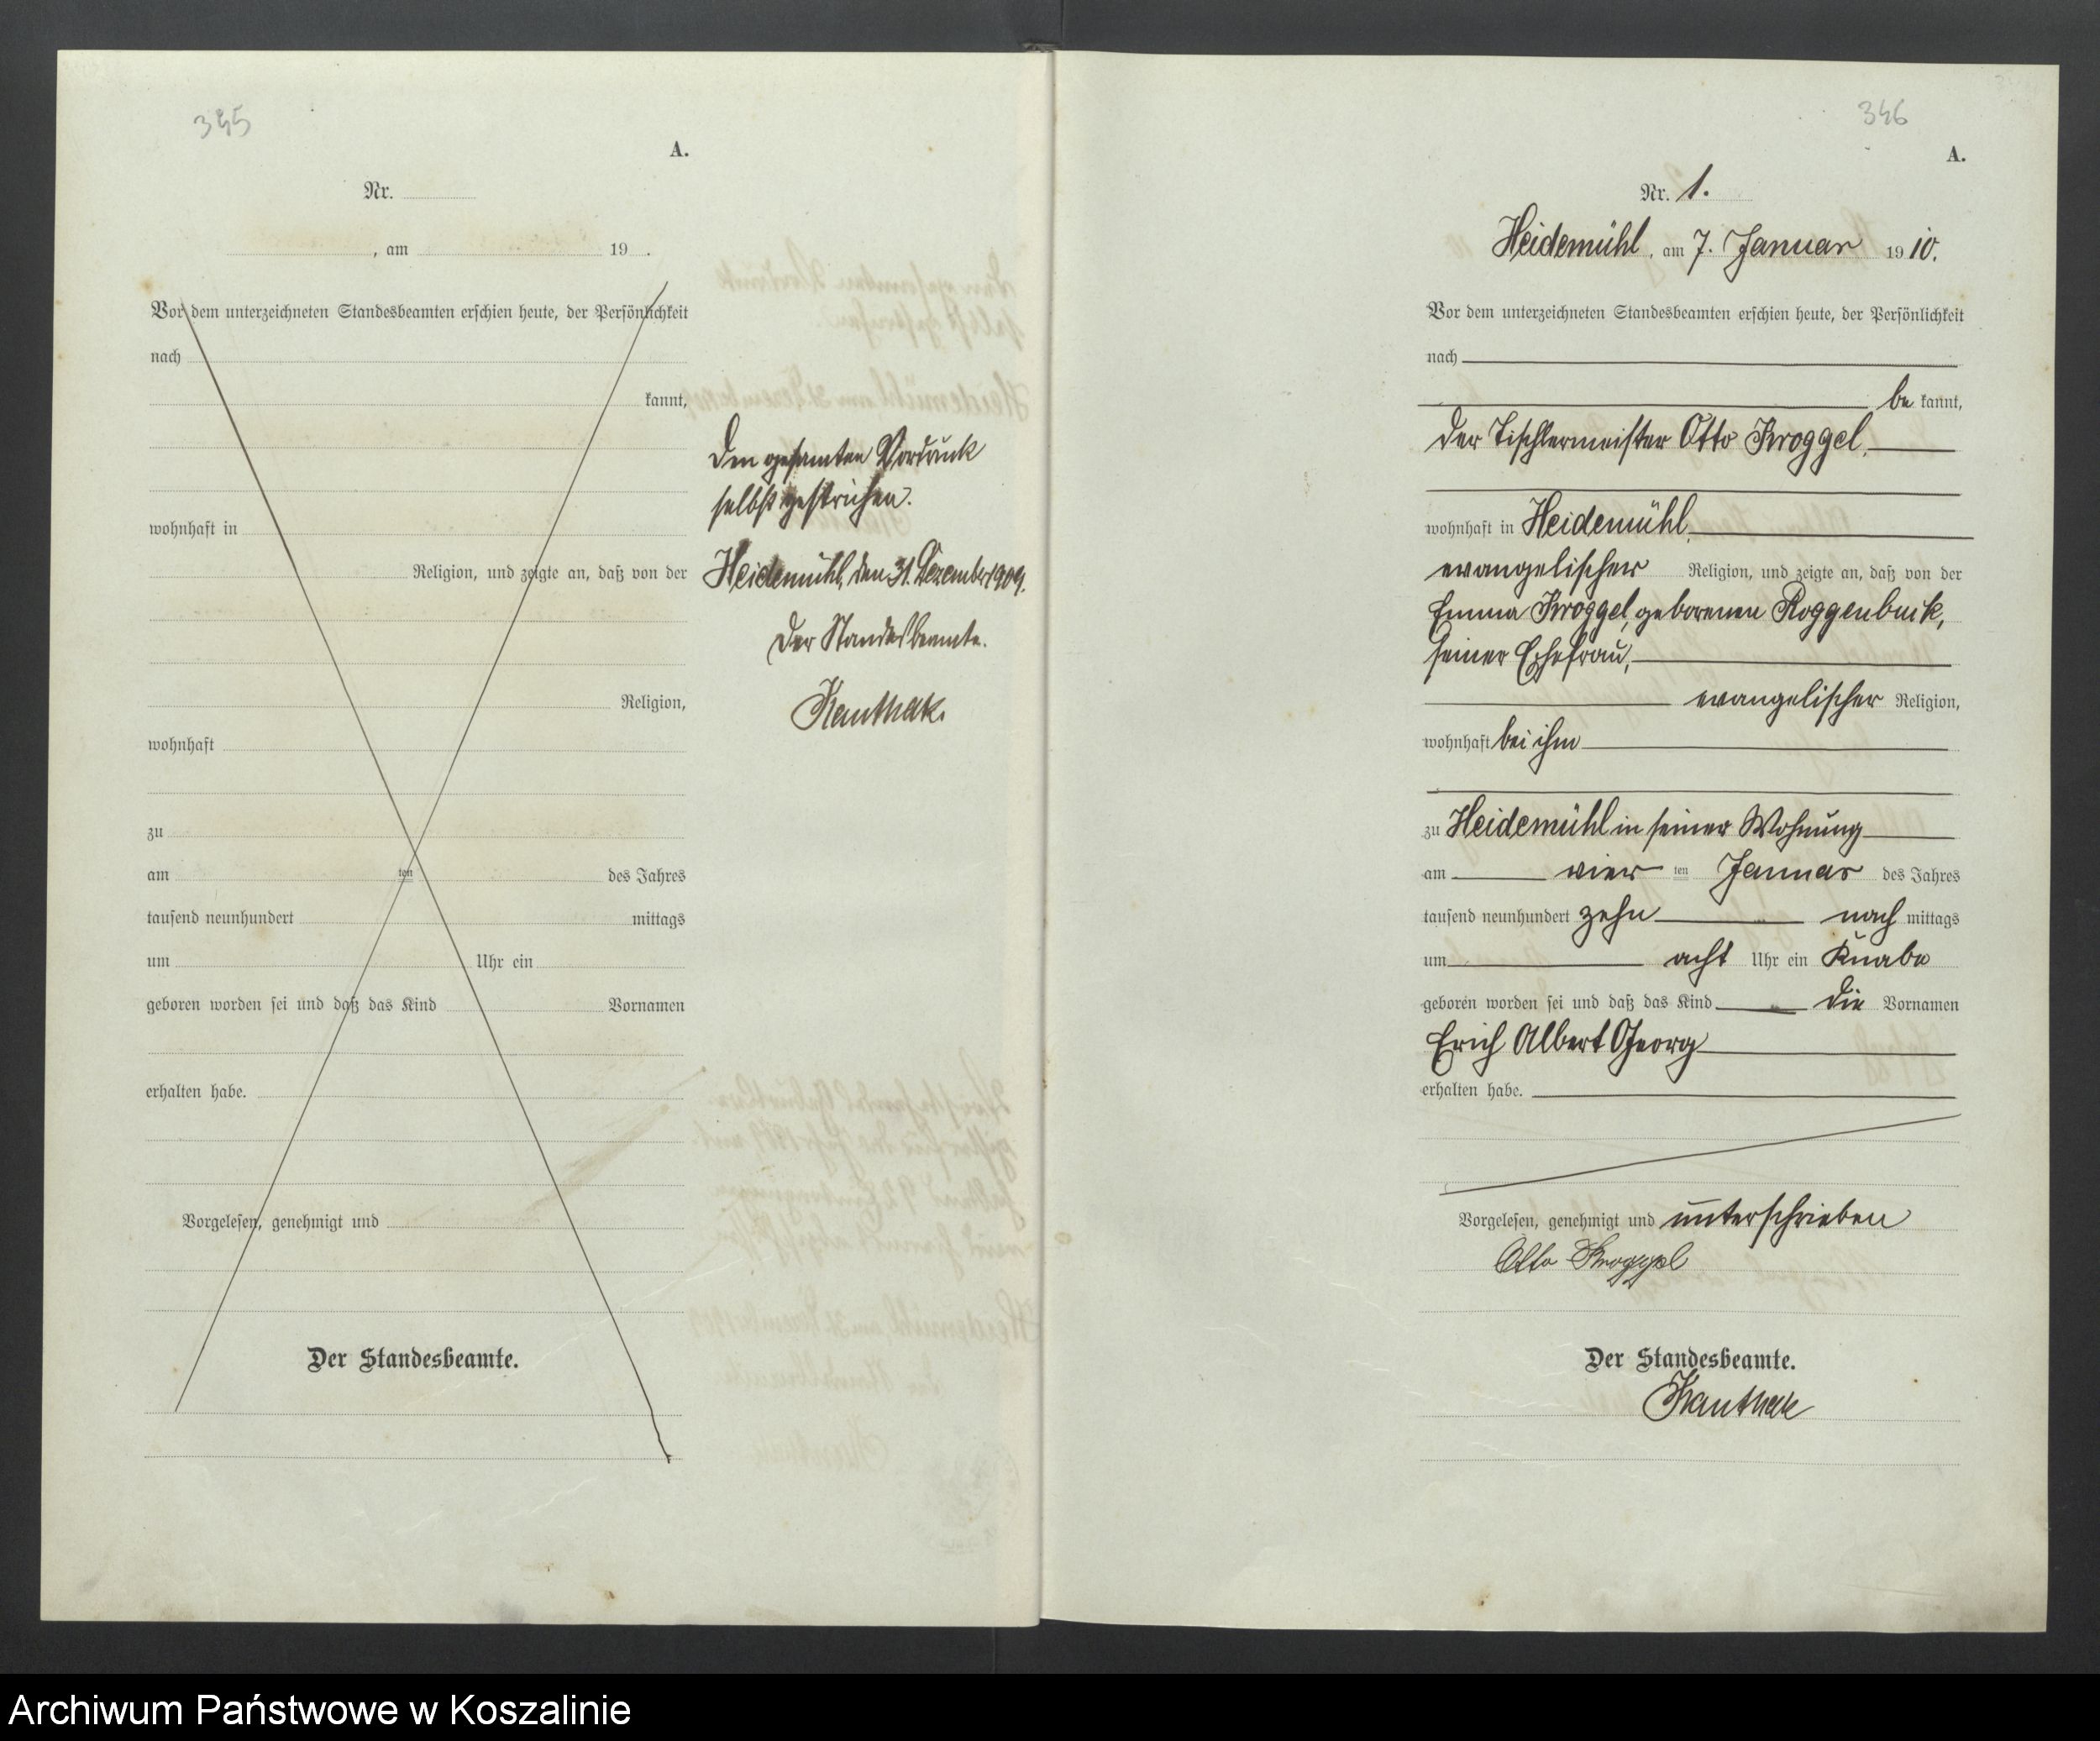 345
A.
Nr.
, am 19 .
Vor dem unterzeichneten Standesbeamten erschien heute, der Persönlichkeit
nach
kannt,
wohnhaft in
Religion, und zeigte an, daß von der
Religion,
wohnhaft
zu
am ten des Jahres
tausend neunhundert mittags
um Uhr ein
geboren worden sei und daß das Kind Vornamen
erhalten habe.
Vorgelesen, genehmigt und
Der Standesbeamte.
Den gesamten Vordruck
selbst gestrichen.
Heidemühl, den 31. Dezember 1909.
Der Standesbeamte.
Kauthak.
346
A.
Nr. 1.
Heidemühl, am 7. Januar 1910.
Vor dem unterzeichneten Standesbeamten erschien heute, der Persönlichkeit
nach
be kannt,
der Tischlermeister Otto Kroggel,
wohnhaft in Heidemühl,
evangelischer Religion, und zeigte an, daß von der
Emma Kroggel, geborenen Roggenbuck,
seiner Ehefrau,
evangelischer Religion,
wohnhaft bei ihm
zu Heidemühl in seiner Wohnung
am vier ten Januar des Jahres
tausend neunhundert zehn nach mittags
um acht Uhr ein Knabe
geboren worden sei und daß das Kind die Vornamen
Erich Albert Georg
erhalten habe.
Vorgelesen, genehmigt und unterschrieben
Otto Kroggel
Der Standesbeamte.
Kauthak
Archiwum Państwowe w Koszalinie